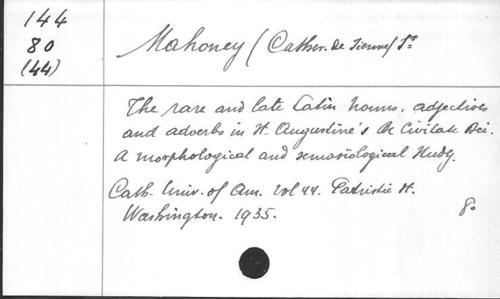 144
80
(44)
Mahoney (Cather. de Sienne) Sr
The rare and late Latin nouns, adjectives
and adverbs in St. Augustine's De Civitate Dei.
A morphological and semasiological study.
Cath. Univ. of Am. Vol 44. Patristic St.
Washington. 1935.
8o